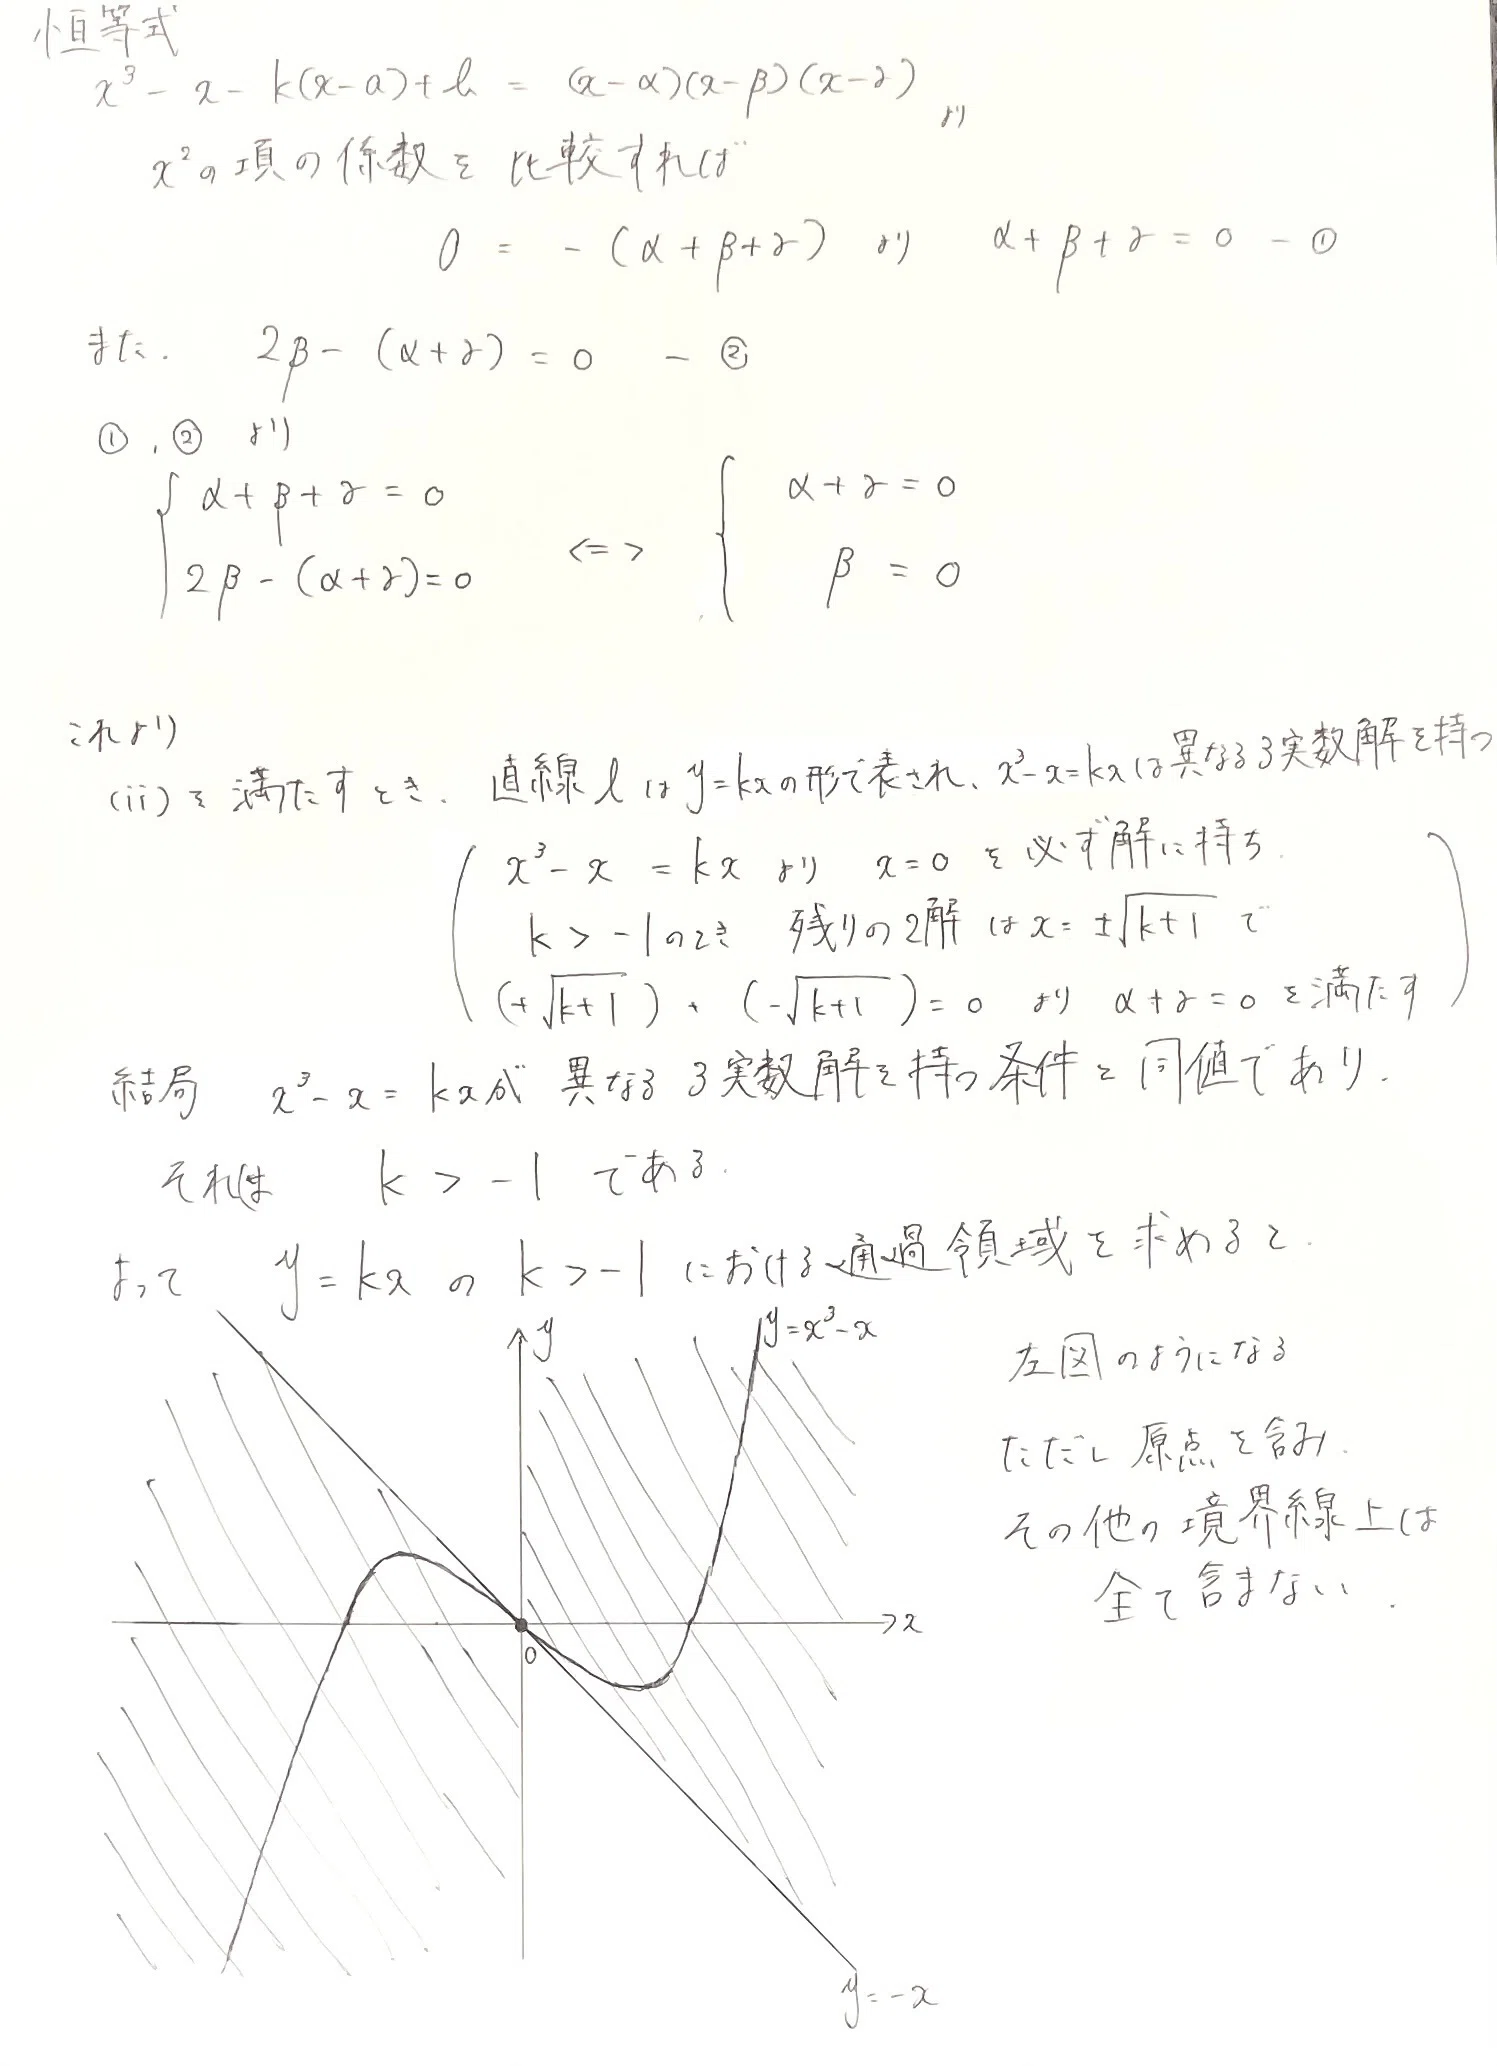 恒等式
x³ - x - k(x-a)+b = (x-α)(x-β)(x-γ) より
x²の項の係数を比較すれば
0 = -(α+β+γ) より α+β+γ=0 -①
また. 2β-(α+γ)=0 -②
①,② より
{ α+β+γ=0 <=> { α+γ=0
2β-(α+γ)=0 β=0
これより
(ii)を満たすとき. 直線lはy=kxの形で表され、x³-x=kxは異なる3実数解を持つ
( x³-x=kx より x=0 を必ず解に持ち.
k>-1のとき 残りの2解はx=±√k+1 で
(+√k+1)+(-√k+1)=0 より α+γ=0を満たす )
結局 x³-x=kxが異なる3実数解を持つ条件と同値であり.
それは k>-1 である.
よって y=kxのk>-1における通過領域を求めると.
y=x³-x
y
左図のようになる
ただし原点を含み.
その他の境界線上は
全て含まない.
x
0
y=-x